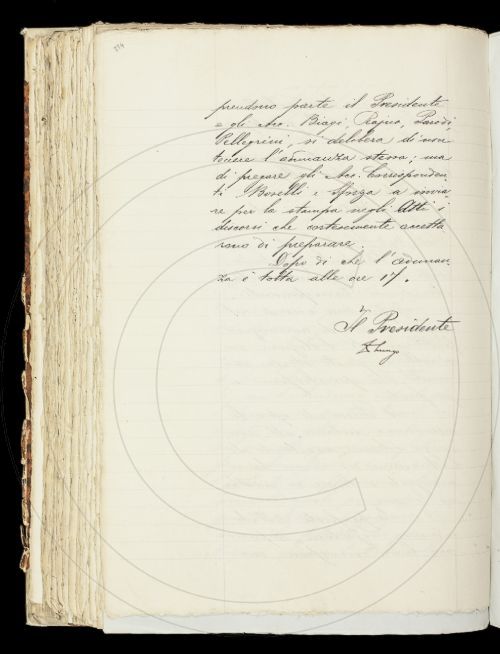 274
prendono parte il Presidente
e gli Acc. Biagi, Rajna, Parodi,
Pellegrini, si delibera di non
tenere l'adunanza stessa; ma
di pregare gli Acc. Corrisponden
ti Borelli e Sforza a invia
re per la stampa negli Atti i
discorsi che cortesemente accetta
rono di preparare.
Dopo di che l'adunan
za è tolta alle ore 17.
Il Presidente